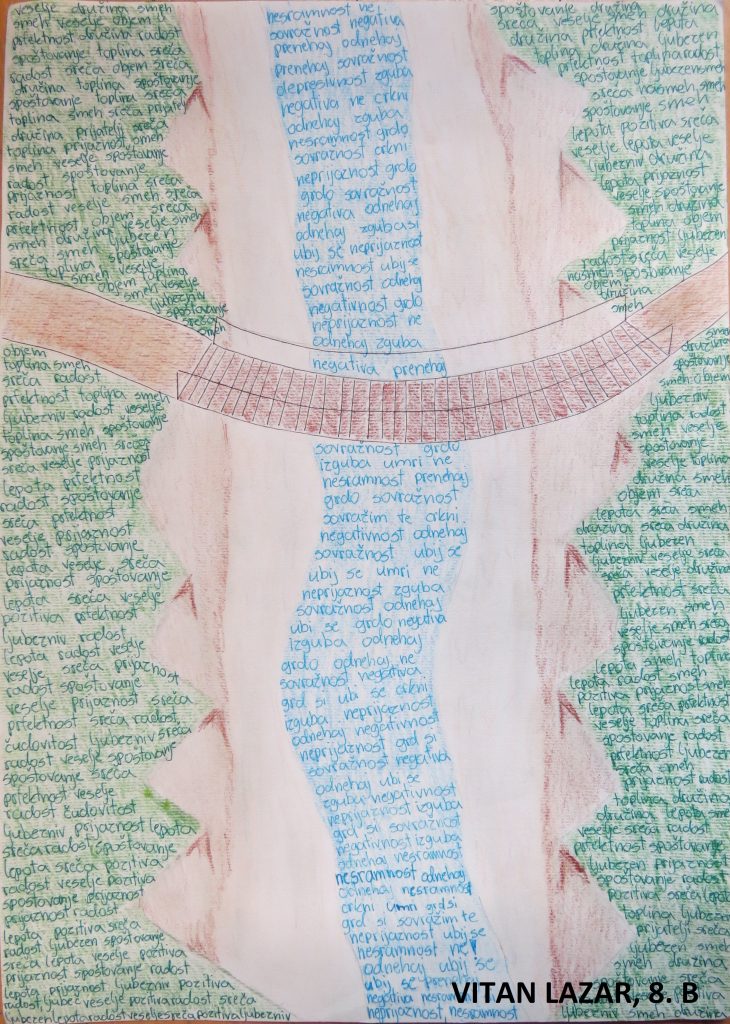 veselje družina smeh
smeh veselje objem
prfektnost družina radost
spoštovanje toplina sreča
radost sreča objem smeh
družina toplina spoštovanje
spoštovanje toplina sreča
toplina smeh sreča prijatelj
družina prijatelji sreča
toplina prijaznost smeh
smeh veselje spoštovanje
radost spoštovanje
prijaznost toplina sreča
radost veselje smeh sreča
prfektnost objem sreča
smeh družina veselje smeh
sreča smeh ljubezen
toplina spoštovanje
smeh veselje
objem toplina
smeh
ljubezniv
spoštovanje
sreča
smeh
objem
toplina smeh
sreča radost
prfektnost toplina smeh
ljubezniv radost veselje
toplina smeh sreča
spoštovanje
sreča veselje prijaznost
lepota prfektnost
radost spoštovanje
sreča prfektnost
veselje prijaznost
radost spoštovanje
lepota veselje sreča
prijaznost spoštovanje
lepota sreča veselje
pozitiva prfektnost
ljubezniv radost
lepota radost veselje
veselje sreča prijaznost
radost spoštovanje
veselje prijaznost sreča
prfektnost sreča radost
čudovitost ljubezniv sreča
radost veselje spoštovanje
spoštovanje sreča
prfektnost veselje
radost čudovitost
ljubezniv prijaznost lepota
sreča radost spoštovanje
lepota sreča pozitiva
radost veselje pozitiva
spoštovanje sreča
prijaznost radost
lepota pozitiva sreča
radost ljubezen spoštovanje
sreča lepota veselje pozitiva
prijaznost spoštovanje
lepota prijaznost ljubezniv pozitiva
radost ljubezen veselje pozitiva radost sreča
ljubezen lepota radost veselje sreča pozitiva ljubezniv
nesramnost ne
sovražnost negativa
prenehaj odnehaj
prenehaj sovražnost
depresivnost zguba
negativa ne crkni
odnehaj zguba
nesramnost grdo
sovražnost crkni
neprijaznost grdo
grdo sovražnost
negativa odnehaj
odnehaj zguba si
ubij se neprijaznost
nesramnost ubij se
sovražnost odnehaj
negativnost grdo
neprijaznost ne
odnehaj zguba
negativa prenehaj
sovražnost grdo
izguba umri ne
nesramnost prenehaj
grdo sovražnost
sovražim te crkni
negativnost odnehaj
sovražnost ubij se
ubij se umri ne
neprijaznost zguba
sovražnost odnehaj
ubi se grdo negativa
izguba odnehaj
grdo odnehaj ne
sovražnost negativa
grd si ubi se crkni
izguba neprijaznost
odnehaj negativnost
neprijaznost grd si
sovražnost negativa
odnehaj ubi se
zguba negativnost
neprijaznost izguba
grd si sovražnost
negativnost izguba
odnehaj nesramnost
nesramnost odnehaj
odnehaj nesramnost
crkni umri grd si
grd si sovražim te
neprijaznost ubij se
nesramnost ne!
odnehaj ubij se
ubij se prenehaj
negativa nesramnost
neprijaznost, nesramnost
spoštovanje družina
sreča veselje smeh
družina prfektnost lepota
toplina družina ljubezen
prfektnost toplina radost
spoštovanje ljubezen smeh
sreča nasmeh smeh
spoštovanje smeh
lepota pozitiva sreča
veselje lepota veselje
ljubezniv družina
lepota prijaznost
veselje spoštovanje
smeh družina
toplina objem
prijaznost ljubezen
radost sreča veselje
nasmeh spoštovanje
objem
družina
smeh
smeh
družina
spoštovanje
smeh objem
ljubezniv
toplina radost
smeh veselje
spoštovanje
veselje toplina
družina smeh
objem sreča
lepota sreča smeh
družina sreča družina
toplina ljubezen
radost veselje sreča
sreča veselje družina
prfektnost
ljubezen smeh
lepota veselje
veselje smeh sreča
spoštovanje radost
lepota smeh toplina
lepota radost smeh
pozitiva prijaznost smeh
lepota sreča prfektnost
veselje toplina sreča
spoštovanje radost
prfektnost ljubezen
sreča smeh
prijaznost radost
toplina družina
družina lepota
veselje sreča radost
prfektnost ljubezen
ljubezen prijaznost
spoštovanje radost
pozitiva sreča lepota
toplina ljubezen
prijatelji sreča
ljubezen smeh
smeh družina
VITAN LAZAR, 8. B